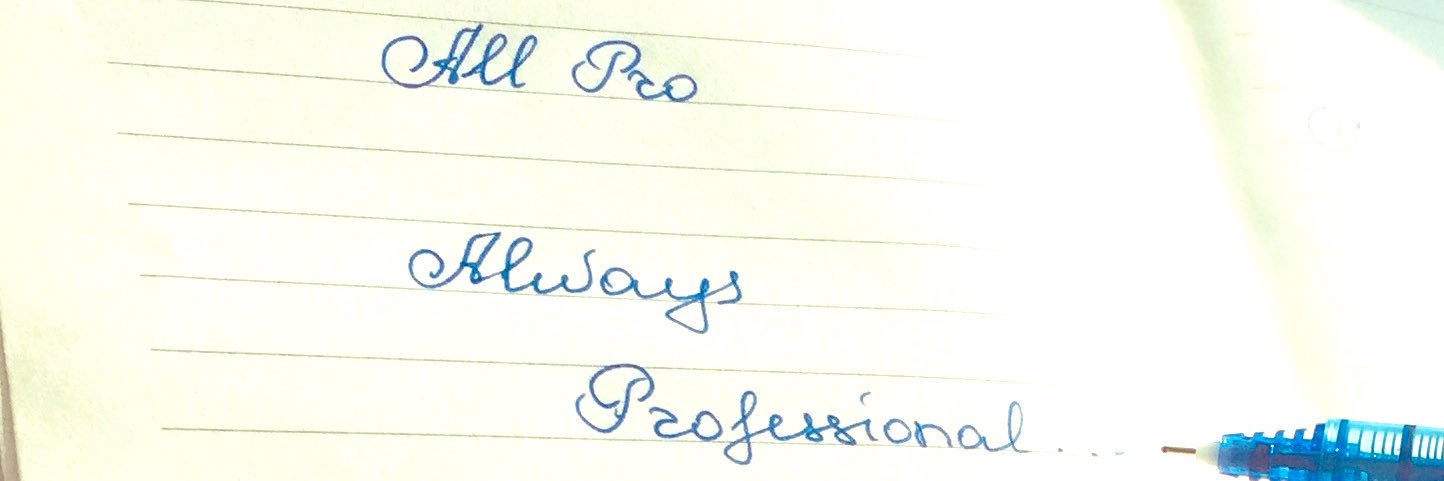 All Pro
Always
Professional....